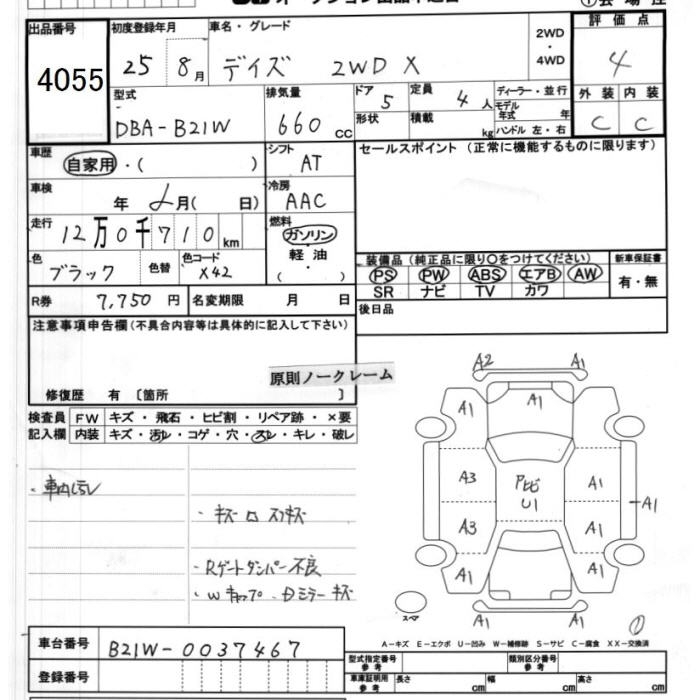 出品番号 初度登録年月 車名・グレード 2WD・4WD 評価点
4055 25 8月 デイズ 2WD X 4
型式 排気量 ドア 5 定員 4人 ディーラー・並行 外装 内装
DBA-B21W 660cc 形状 積載 kg モデル年式 年 ハンドル 左・右 C C
車歴 自家用・( ) シフト AT セールスポイント(正常に機能するものに限ります)
車検 年 月( 日) 冷房 AAC
走行 12万0千710km 燃料 ガソリン・軽油・( )
色 ブラック 色替 色コード X42 装備品(純正品に限り〇をつけてください) 新車保証書
PS PW ABS エアB AW 有・無
R券 7,750円 名変期限 月 日 SR ナビ TV カワ
注意事項申告欄(不具合内容等は具体的に記入して下さい) 後日品
原則ノークレーム
修復歴 有 〔箇所 〕
検査員 FW キズ・飛石・ヒビ割・リペア跡・×要
記入欄 内装 キズ・汚レ・コゲ・穴・スレ・キレ・破レ
・車内汚レ
・キズ
・Rゲートダンパー不良
・Wキャップ・Dミラーキズ
A2 A1
A1 A1 A1
A3 U1 A1
A1
A3 A1
A1 A1
スペア A1
①
A-キズ E-エクボ U-凹み W-補修跡 S-サビ C-腐食 XX-交換済
車台番号 B21W-0037467
登録番号
型式指定番号 参考 類別区分番号 参考
車庫証明用 参考 長さ cm 幅 cm 高さ cm